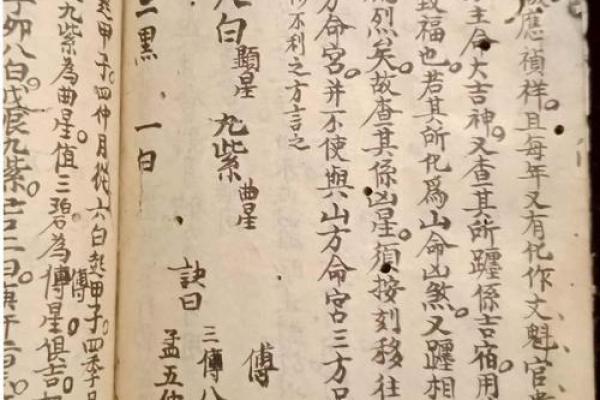 應禎祥且每年又有化作文魁官貴
主命大吉神又查其所躔係吉宿用
致福也若其所化為山命凶煞又躔相
烈矣故查其係凶星須按刻移往
方命宮并不使與山方命宮三方
不利之方言之
傅
九白顯星 九紫曲星 三傅八
二黑 一白 訣曰 孟五仲
起甲子四仲月從六白起甲子四季月
九紫為曲星值三碧為傅星俱吉
子卯八白戊辰九紫